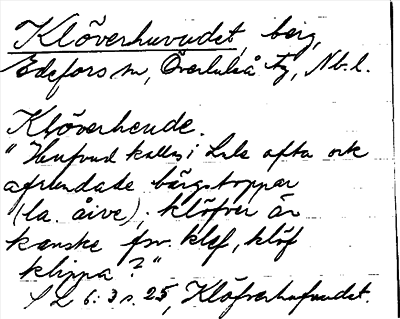 Klöverhuvudet, berg,
Edefors sn, Överluleå tg, Nb. l.
Klöverhende.
"Hufvud kallas i Lule ofta ock
afrundade bärgstoppar
(la. åive); klöfver är
kanske fsv. klef, klöf
klippa?"
SL 6:3 s. 25, Klöfverhufvudet.